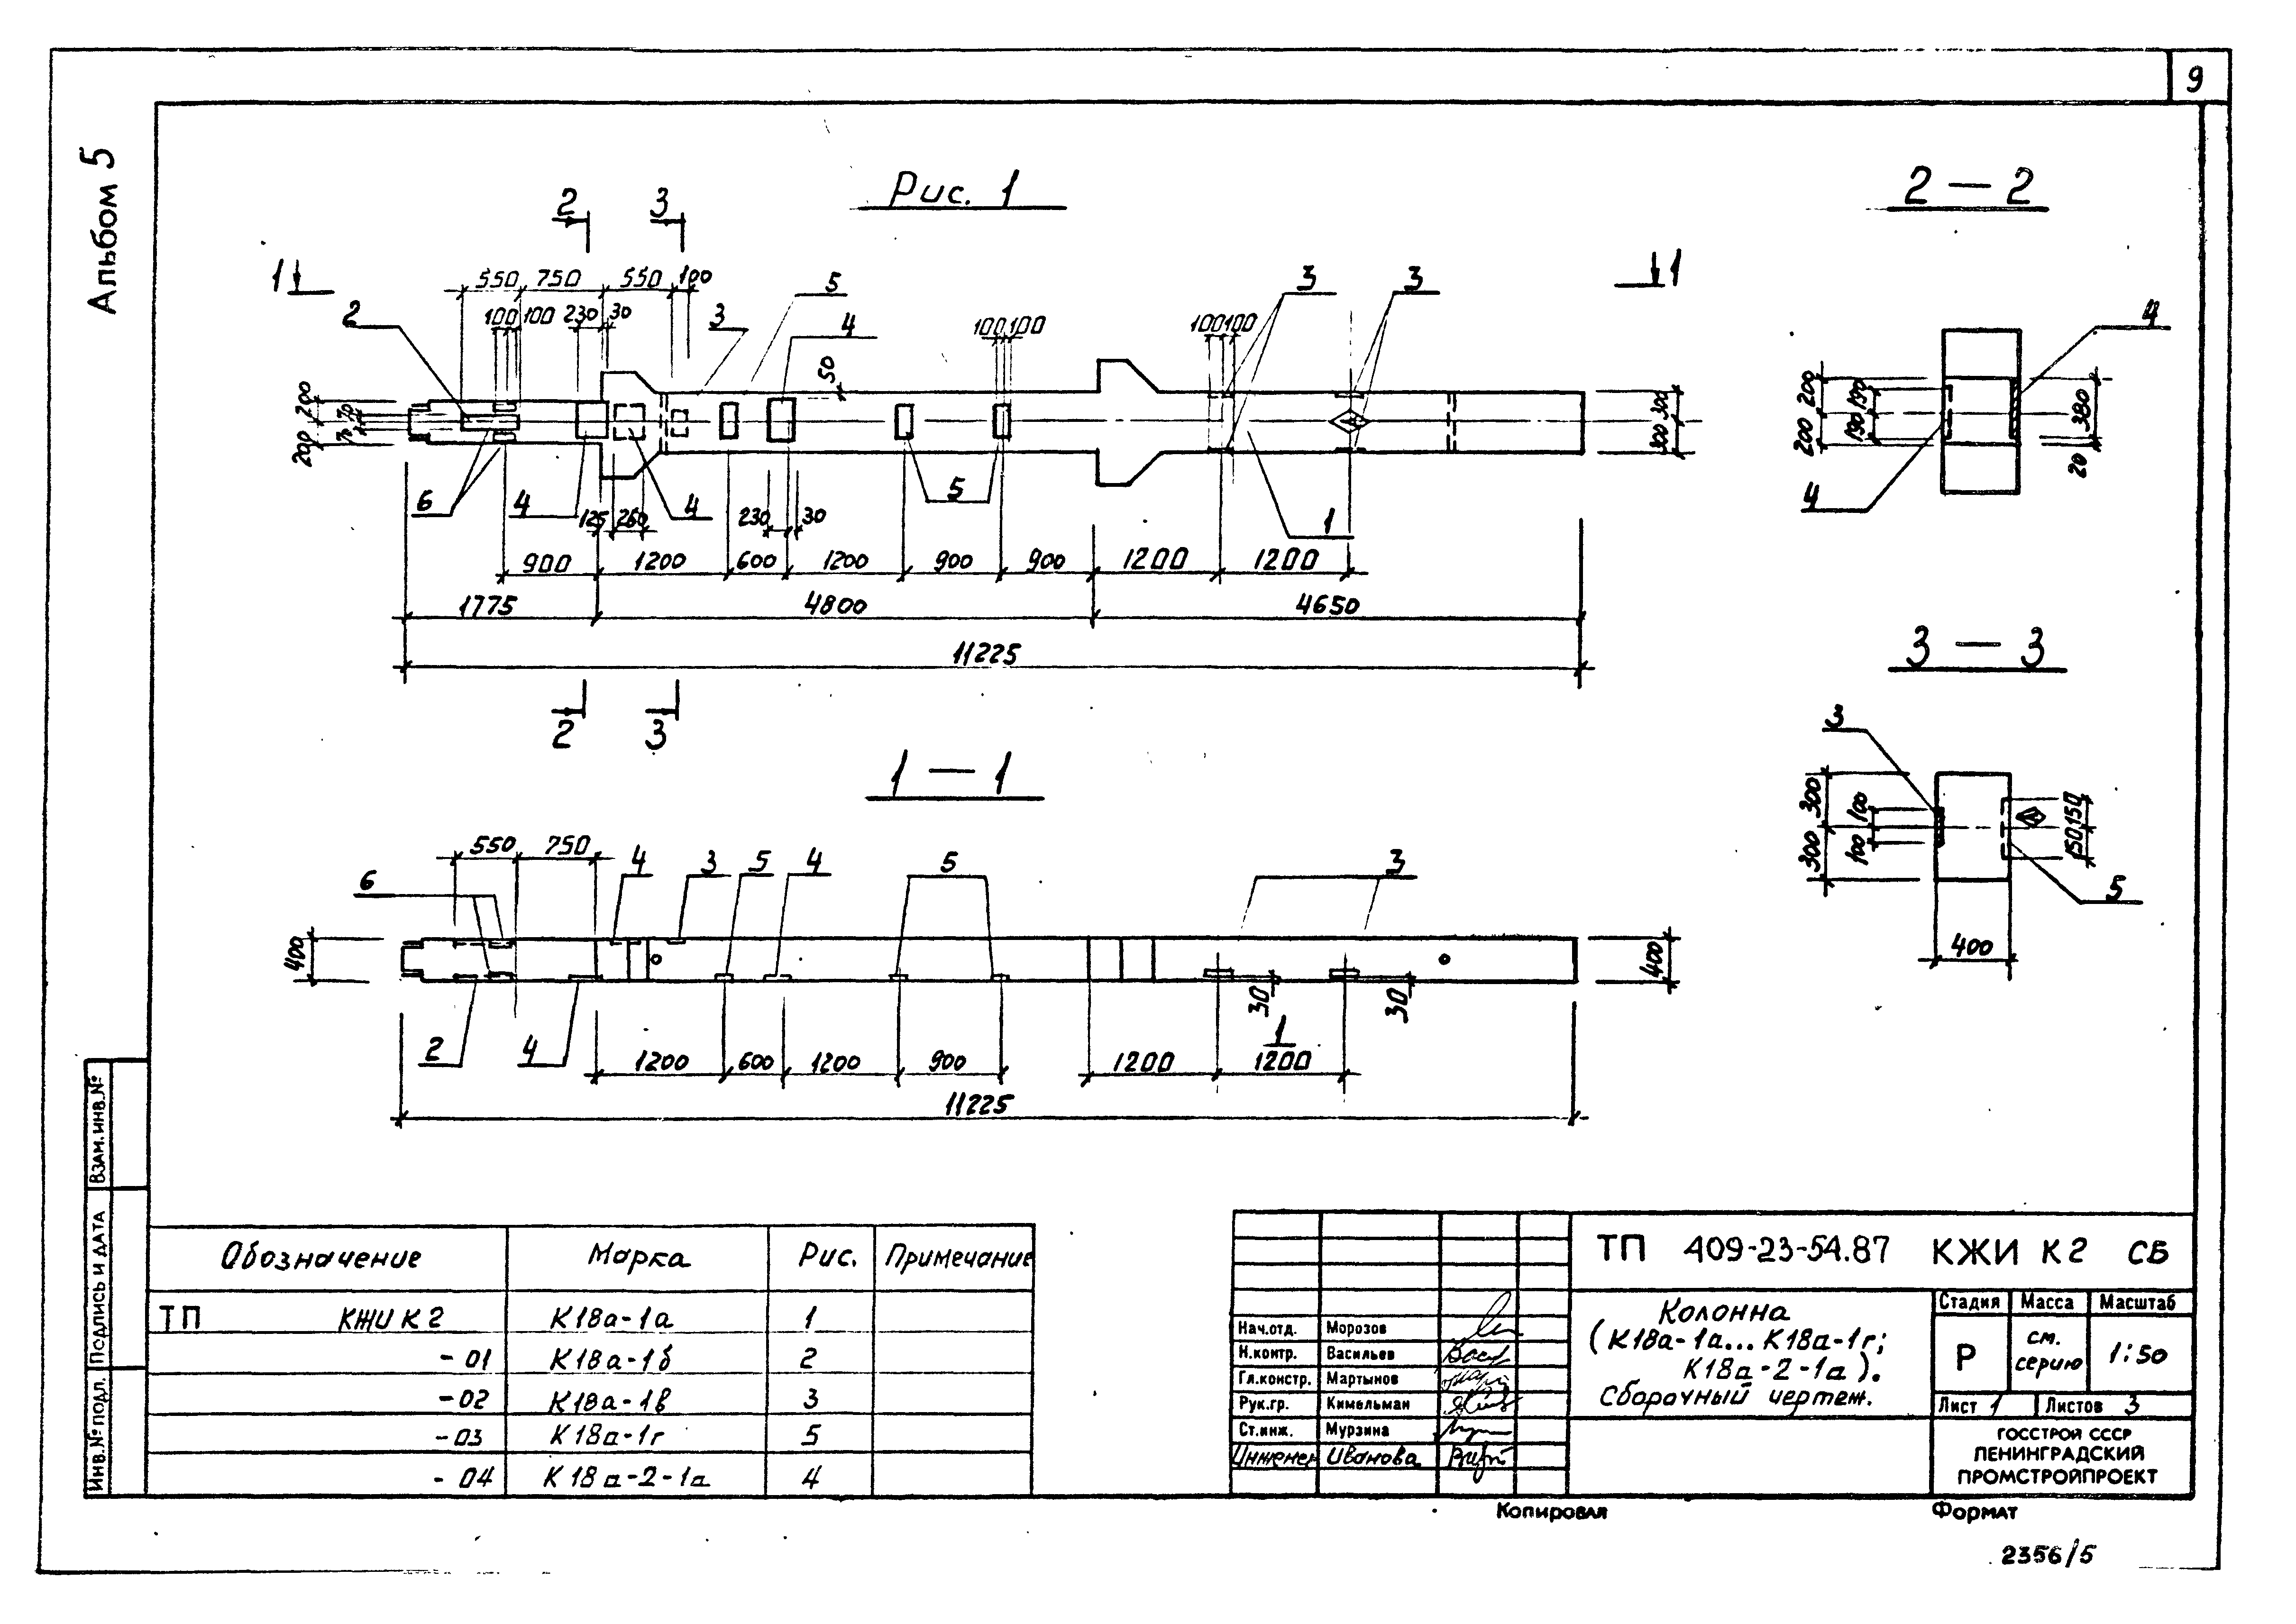 9
Альбом 5
Рис. 1
2 3
1 1
550 750 550 100
5 3 3
2 100 100 230 30 3 4 100 100 100 100
50
200 70
200 70
300
300
6 4 125 260 4 230 30 5 1
900 1200 600 1200 900 900 1200 1200
1775 4800 4650
11225
2 3
2 — 2
4
200 190 380
200 190 20
4
3 — 3
3
300 100 150
300 100 150
5
400
1 — 1
550 750 4 3 5 4 5 3
6
400 400
30 30
2 4 1
1200 600 1200 900 1200 1200
11225
Обозначение Марка Рис. Примечание
ТП КЖИ К2 К18а-1а 1
-01 К18а-1б 2
-02 К18а-1в 3
-03 К18а-1г 5
-04 К18а-2-1а 4
ТП 409-23-54.87 КЖИ К2 СБ
Колонна
(К18а-1а... К18а-1г;
К18а-2-1а).
Сборочный чертеж.
Стадия Масса Масштаб
Р см. серию 1:50
Лист 1 Листов 3
ГОССТРОЙ СССР
ЛЕНИНГРАДСКИЙ
ПРОМСТРОЙПРОЕКТ
Нач.отд. Морозов
Н.контр. Васильев
Гл.констр. Мартынов
Рук.гр. Кимельман
Ст.инж. Мурзина
Инженер Иванова
Копировал Формат
2356/5
Инв.№ подл. Подпись и дата Взам.инв.№